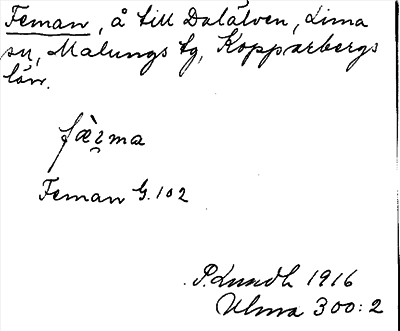 Feman, å till Dalälven, Lima
sn, Malungs tg, Kopparbergs
län.
fæ̀rma
Feman G. 102
P. Lundh 1916
Ulma 300:2